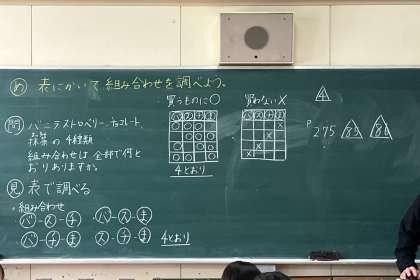 め 表にかいて組み合わせを調べよう。
買うものに○
買わない×
問 バニラ、ストロベリー、チョコレート、
抹茶の4種類
組み合わせは全部で何と
おりありますか。
4とおり
見 表で調べる
・組み合わせ
バ-ス-チ
バ-ス-ま
バ-チ-ま
ス-チ-ま
4とおり
4
P275
85
86